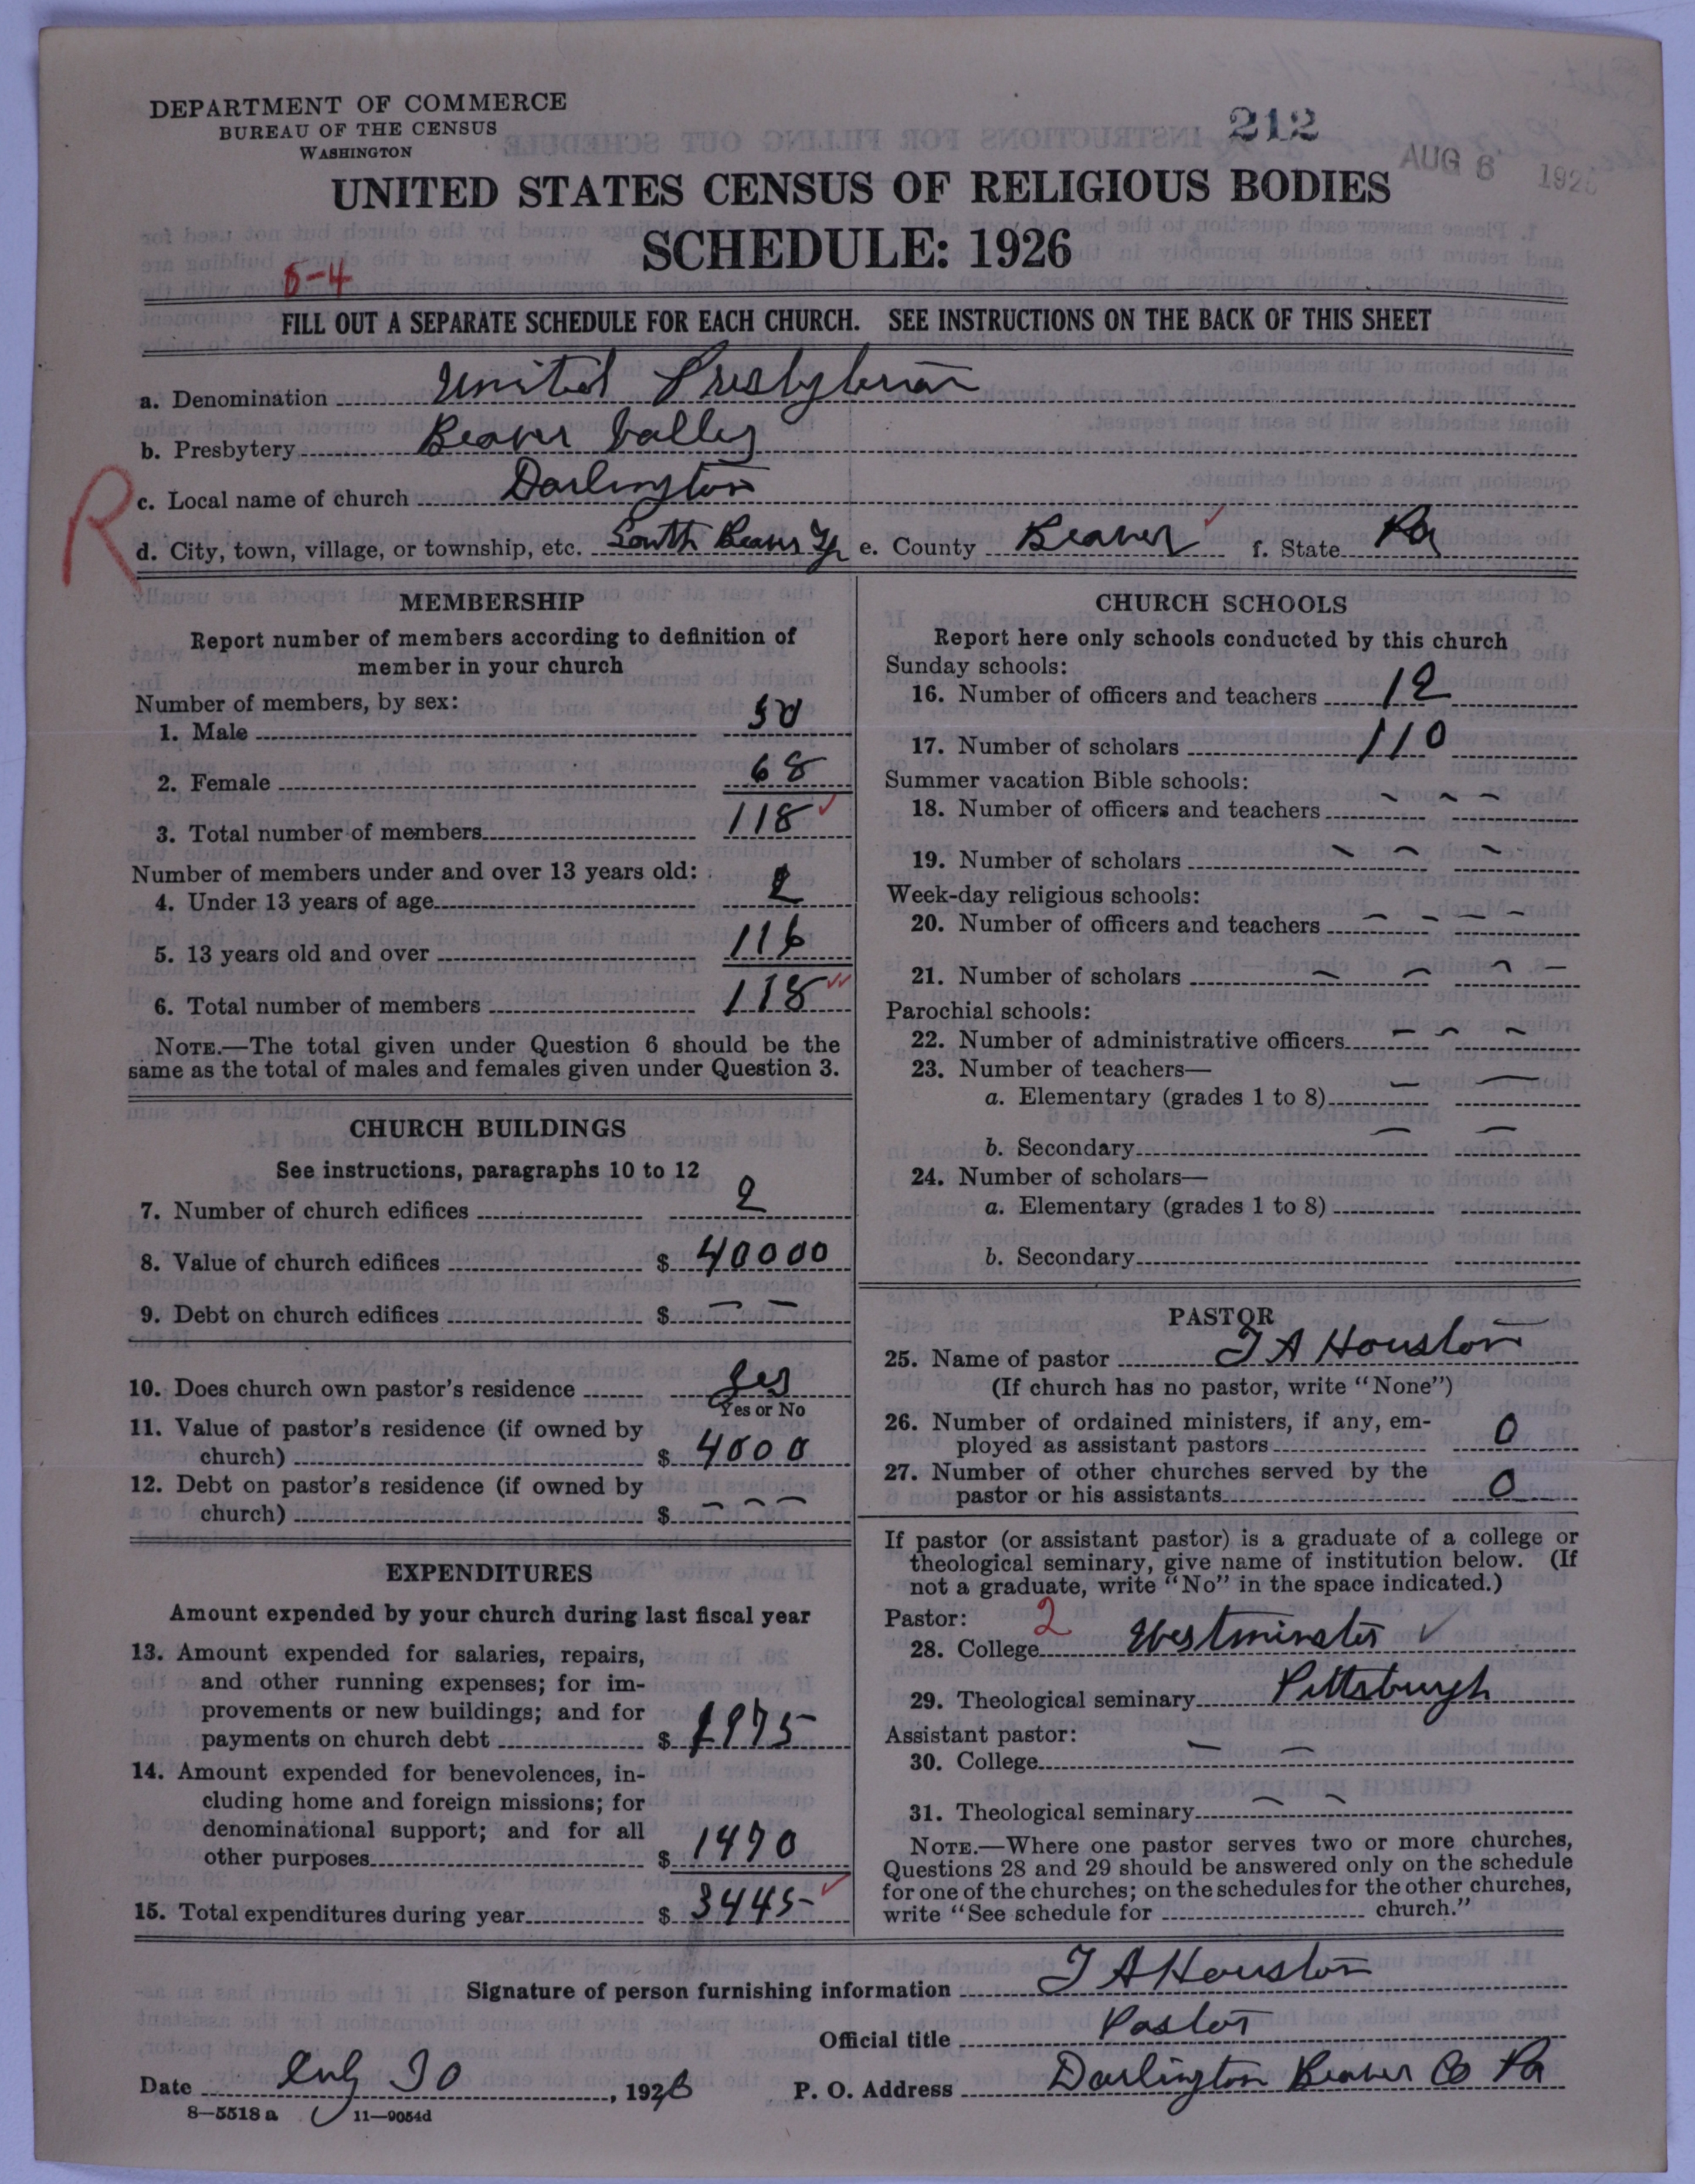 DEPARTMENT OF COMMERCE
BUREAU OF THE CENSUS
WASHINGTON
212
AUG 6 192
UNITED STATES CENSUS OF RELIGIOUS BODIES
SCHEDULE: 1926
5-4
FILL OUT A SEPARATE SCHEDULE FOR EACH CHURCH. SEE INSTRUCTIONS ON THE BACK OF THIS SHEET
a. Denomination United Presbyterian
b. Presbytery Beaver Valley
R
c. Local name of church Darlington
d. City, town, village, or township, etc. South Beaver Tp e. County Beaver f. State Pa
MEMBERSHIP
Report number of members according to definition of
member in your church
Number of members, by sex:
1. Male 50
2. Female 68
3. Total number of members 118
Number of members under and over 13 years old:
4. Under 13 years of age 2
5. 13 years old and over 116
6. Total number of members 118
NOTE.—The total given under Question 6 should be the
same as the total of males and females given under Question 3.
CHURCH BUILDINGS
See instructions, paragraphs 10 to 12
7. Number of church edifices 2
8. Value of church edifices $ 40000
9. Debt on church edifices $ — —
10. Does church own pastor's residence Yes
Yes or No
11. Value of pastor's residence (if owned by
church) $ 4000
12. Debt on pastor's residence (if owned by
church) $ — — —
EXPENDITURES
Amount expended by your church during last fiscal year
13. Amount expended for salaries, repairs,
and other running expenses; for im-
provements or new buildings; and for
payments on church debt $ 1975
14. Amount expended for benevolences, in-
cluding home and foreign missions; for
denominational support; and for all
other purposes $ 1470
15. Total expenditures during year $ 3445
CHURCH SCHOOLS
Report here only schools conducted by this church
Sunday schools:
16. Number of officers and teachers 12
17. Number of scholars 110
Summer vacation Bible schools:
18. Number of officers and teachers — — —
19. Number of scholars — — —
Week-day religious schools:
20. Number of officers and teachers — — — —
21. Number of scholars — — — —
Parochial schools:
22. Number of administrative officers — — —
23. Number of teachers—
a. Elementary (grades 1 to 8) — —
b. Secondary — —
24. Number of scholars—
a. Elementary (grades 1 to 8)
b. Secondary
PASTOR
25. Name of pastor J A Houston
(If church has no pastor, write "None")
26. Number of ordained ministers, if any, em-
ployed as assistant pastors 0
27. Number of other churches served by the
pastor or his assistants 0
If pastor (or assistant pastor) is a graduate of a college or
theological seminary, give name of institution below. (If
not a graduate, write "No" in the space indicated.)
Pastor: 2
28. College Westminster
29. Theological seminary Pittsburgh
Assistant pastor:
30. College — —
31. Theological seminary — —
NOTE.—Where one pastor serves two or more churches,
Questions 28 and 29 should be answered only on the schedule
for one of the churches; on the schedules for the other churches,
write "See schedule for church."
Signature of person furnishing information J A Houston
Official title Pastor
Date July 30, 1926 P. O. Address Darlington Beaver Co Pa
8—5518 a 11—9054d